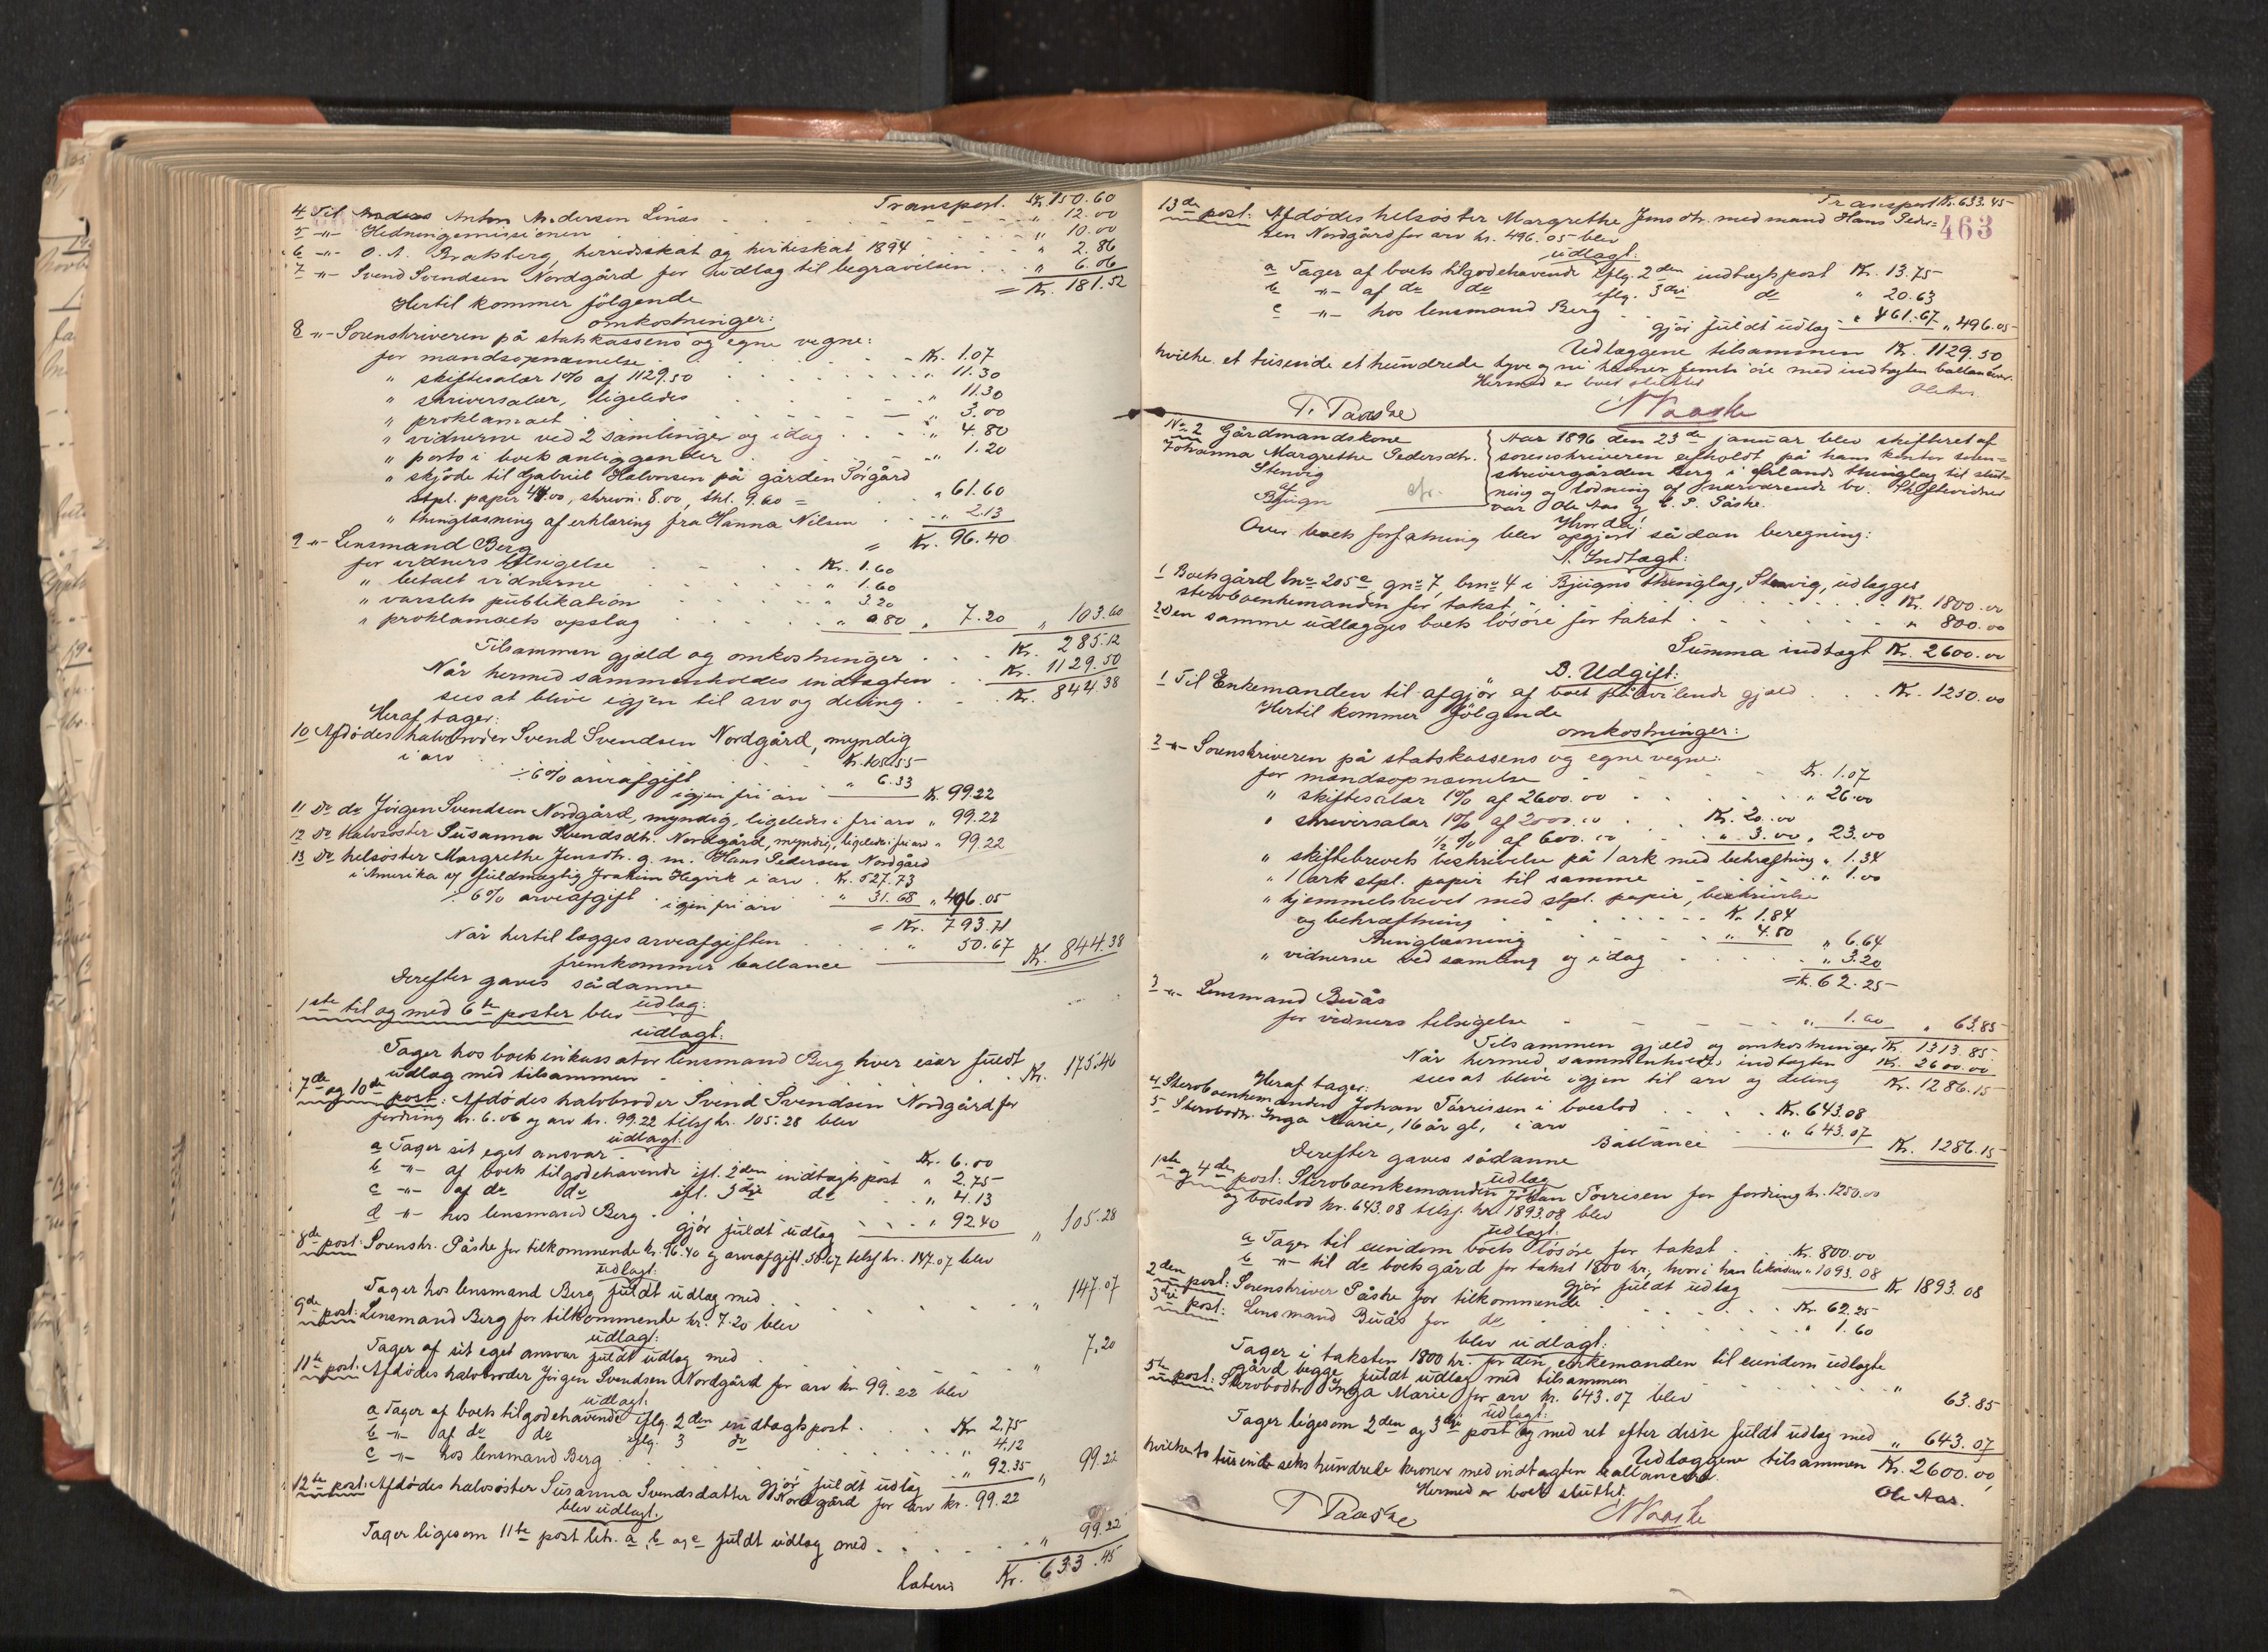 Transport. Kr. 150.60
4 Til Anton Andersen Linas " 12.00
5 -"- Hedningemissionen " 10.00
6 -"- O. A. Braksberg, herredsskat og kirkeskat 1894 " 2.86
7 -"- Svend Svendsen Nordgård for udlag til begravelsen " 6.06
= Kr. 181.52
Hertil kommer følgende
omkostninger:
8 -"- Sorenskriveren på statskassens og egne vegne:
for mandsopnævnelse Kr. 1.07
" skiftesalær 1% af 1129.50 " 11.30
" skriversalær, ligeledes " 11.30
" proklamaet " 3.00
" vidnerne ved 2 samlinger og idag " 4.80
" porto i boets anliggender " 1.20
" skjøde til Gabriel Halvorsen på gården Sørgård
stpl. papir 44.00, skrivn. 8.00, skl. 9.60 = " 61.60
" thinglæsning af erklæring fra Hanna Nilsen " 2.13
= Kr. 96.40
9 -"- Lensmand Berg
for vidners tilsigelse Kr. 1.60
" betalt vidnerne " 1.60
" varslets publikation " 3.20
" proklamaets opslag " 0.80 " 7.20 " 103.60
Tilsammen gjæld og omkostninger Kr. 285.12
Når hermed sammenholdes indtægten Kr. 1129.50
sees at blive igjen til arv og deling Kr. 844.38
Heraf tager:
10 Afdødes halvbroder Svend Svendsen Nordgård, myndig
i arv Kr. 105.55
÷ 6% arveafgift " 6.33
igjen fri arv Kr. 99.22
11 Do do Jørgen Svendsen Nordgård, myndig, ligeledes i fri arv " 99.22
12 Do halvsøster Susanna Svendsdtr. Nordgård, myndig, ligeledes i fri arv " 99.22
13 Do helsøster Margrethe Jensdtr. g. m. Hans Pedersen Nordgård
i Amerika v/ fuldmægtig Joakim Hegvik i arv Kr. 527.73
÷ 6% arveafgift " 31.68
igjen fri arv " 496.05
= Kr. 793.71
Når hertil lægges arveafgiften " 50.67
fremkommer ballance Kr. 844.38
Derefter gaves sådanne
udlæg:
1ste til og med 6te poster blev
udlagt:
Tager hos boets inkassator lensmand Berg hver især fuldt
udlæg med tilsammen Kr. 175.46
7de og 10de post: Afdødes halvbroder Svend Svendsen Nordgård for
fordring kr. 6.06 og arv kr. 99.22 tilsj kr. 105.28 blev
udlagt:
a Tager sit eget ansvar Kr. 6.00
b -"- af boets tilgodehavende ifl. 2den indtægts post " 2.75
c -"- af do do ifl. 3die do " 4.13
d -"- hos lensmand Berg " 92.40
gjør fuldt udlæg " 105.28
8de post: Sorenskr. Påske for tilkommende kr. 96.40 og arveafgift 50.67 tilsj kr. 147.07 blev
udlagt:
Tager hos lensmand Berg fuldt udlæg med " 147.07
9de post: Lensmand Berg for tilkommende kr. 7.20 blev
udlagt:
Tager af sit eget ansvar fuldt udlæg med " 7.20
11te post: Afdødes halvbroder Jørgen Svendsen Nordgård for arv kr. 99.22 blev
udlagt:
a Tager af boets tilgodehavende iflg. 2den indtægtspost Kr. 2.75
b -"- af do do iflg. 3 do " 4.12
c -"- hos lensmand Berg " 92.35
gjør fuldt udlæg " 99.22
12te post: Afdødes halvsøster Susanna Svendsdatter Nordgård for arv kr. 99.22
blev udlagt:
Tager ligesom 11te post litr. a, b og c fuldt udlæg med " 99.22
lateris Kr. 633.45
Transport Kr. 633.45
463
13de post: Afdødes helsøster Margrethe Jensdtr. med mand Hans Peder-
sen Nordgård for arv kr. 496.05 blev
udlagt:
a Tager af boets tilgodehavende iflg. 2den indtægts post Kr. 13.75
b -"- af do do iflg. 3die do " 20.63
c -"- hos lensmand Berg " 461.67
gjør fuldt udlæg " 496.05
Udlæggene tilsammen Kr. 1129.50
hvilke et tusinde et hundrede tyve og ni kroner femti øre med indtægten ballancerer.
Hermed er boet sluttet
T. Paaske
N Paaske
Ole Aas
No 2 Gårdmandskone
Johanna Margrethe Pedersdtr.
Stenvig
af
Bjugn
cfr.
Aar 1896 den 23de januar blev skifteret af
sorenskriveren afholdt på hans kontor soren-
skrivergården Berg i Ørlands thinglag til slut-
ning og lodning af nærværende bo. Skiftevidner
var Ole Aas og T. P. Påske.
Hvorda!
Over boets forfatning blev opgjort sådan beregning:
A. Indtægt:
1 Boets gård lno 205e, gno 7, brno 4 i Bjugns thinglag, Stenvig, udlægges
sterboenkemanden for takst Kr. 1800.00
2 Den samme udlægges boets løsøre for takst " 800.00
Summa indtægt Kr. 2600.00
B. Udgift:
1 Til Enkemanden til afgjør af boet påhvilende gjæld Kr. 1250.00
Hertil kommer følgende
omkostninger:
2 -"- Sorenskriveren på statskassens og egne vegne:
for mandsopnævnelse Kr. 1.07
" skiftesalær 1% af 2600.00 " 26.00
" skriversalær 1% af 2000.00 Kr. 20.00
1/2% af 600.00 " 3.00 " 23.00
" skiftebrevets beskrivelse på 1 ark med bekræftning " 1.34
" 1 ark stpl. papir til samme " 1.00
" hjemmelsbrevet med stpl. papir, beskrivelse
og bekræftning Kr. 1.84
thinglæsning " 4.80 " 6.64
" vidnerne ved samling og idag " 3.20
= Kr. 62.25
3 -"- Lensmand Buås
for vidners tilsigelse " 1.60 " 63.85
Tilsammen gjæld og omkostninger Kr. 1313.85
Når hermed sammenholdes indtægten Kr. 2600.00
sees at blive igjen til arv og deling Kr. 1286.15
Heraf tager:
4 Sterboenkemanden Johan Tørrissen i boeslod Kr. 643.08
5 Sterbodtr. Inga Marie, 16 år gl, i arv " 643.07
Ballance Kr. 1286.15
Derefter gaves sådanne
udlæg
1ste og 4de post: Sterboenkemanden Johan Tørrisen for fordring kr. 1250.00
og boeslod kr. 643.08 tilsj. kr. 1893.08 blev
udlagt:
a Tager til eiendom boets løsøre for takst Kr. 800.00
b -"- til do boets gård for takst 1800 kr, hvori han likviderer " 1093.08
gjør fuldt udlæg Kr 1893.08
2den post: Sorenskriver Påske for tilkommende Kr. 62.25
3die post: Lensmand Buås for do " 1.60
blev udlagt:
Tager i taksten 1800 kr. for den enkemanden til eiendom udlagte
gård begge fuldt udlæg med tilsammen " 63.85
5te post: Sterbodtr Inga Marie for arv kr. 643.07 blev
udlagt:
Tager ligesom 2den og 3die post og med ret efter disse fuldt udlæg med " 643.07
Udlæggene tilsammen Kr. 2600.00,
hvilke to tusinde seks hundrede kroner med indtægten ballancerer.
Hermed er boet sluttet.
T Paaske
N Paaske
Ole Aas.